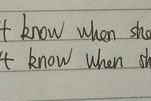 know when she
know when sh